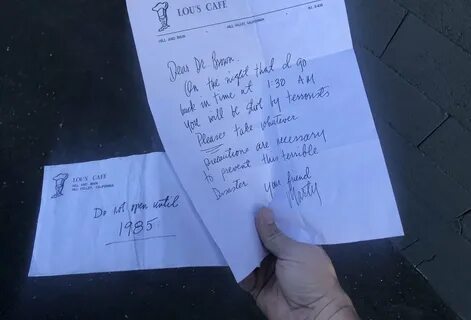 LOU'S CAFÉ
HILL AND MAIN
HILL VALLEY, CALIFORNIA
Dear Dr. Brown,
On the night that I go
back in time at 1:30 AM
you will be shot by terrorists
Please take whatever
precautions are necessary
to prevent this terrible
Disaster.
Your friend
Marty
LOU'S CAFÉ
HILL AND MAIN
HILL VALLEY, CALIFORNIA
Do not open until
1985